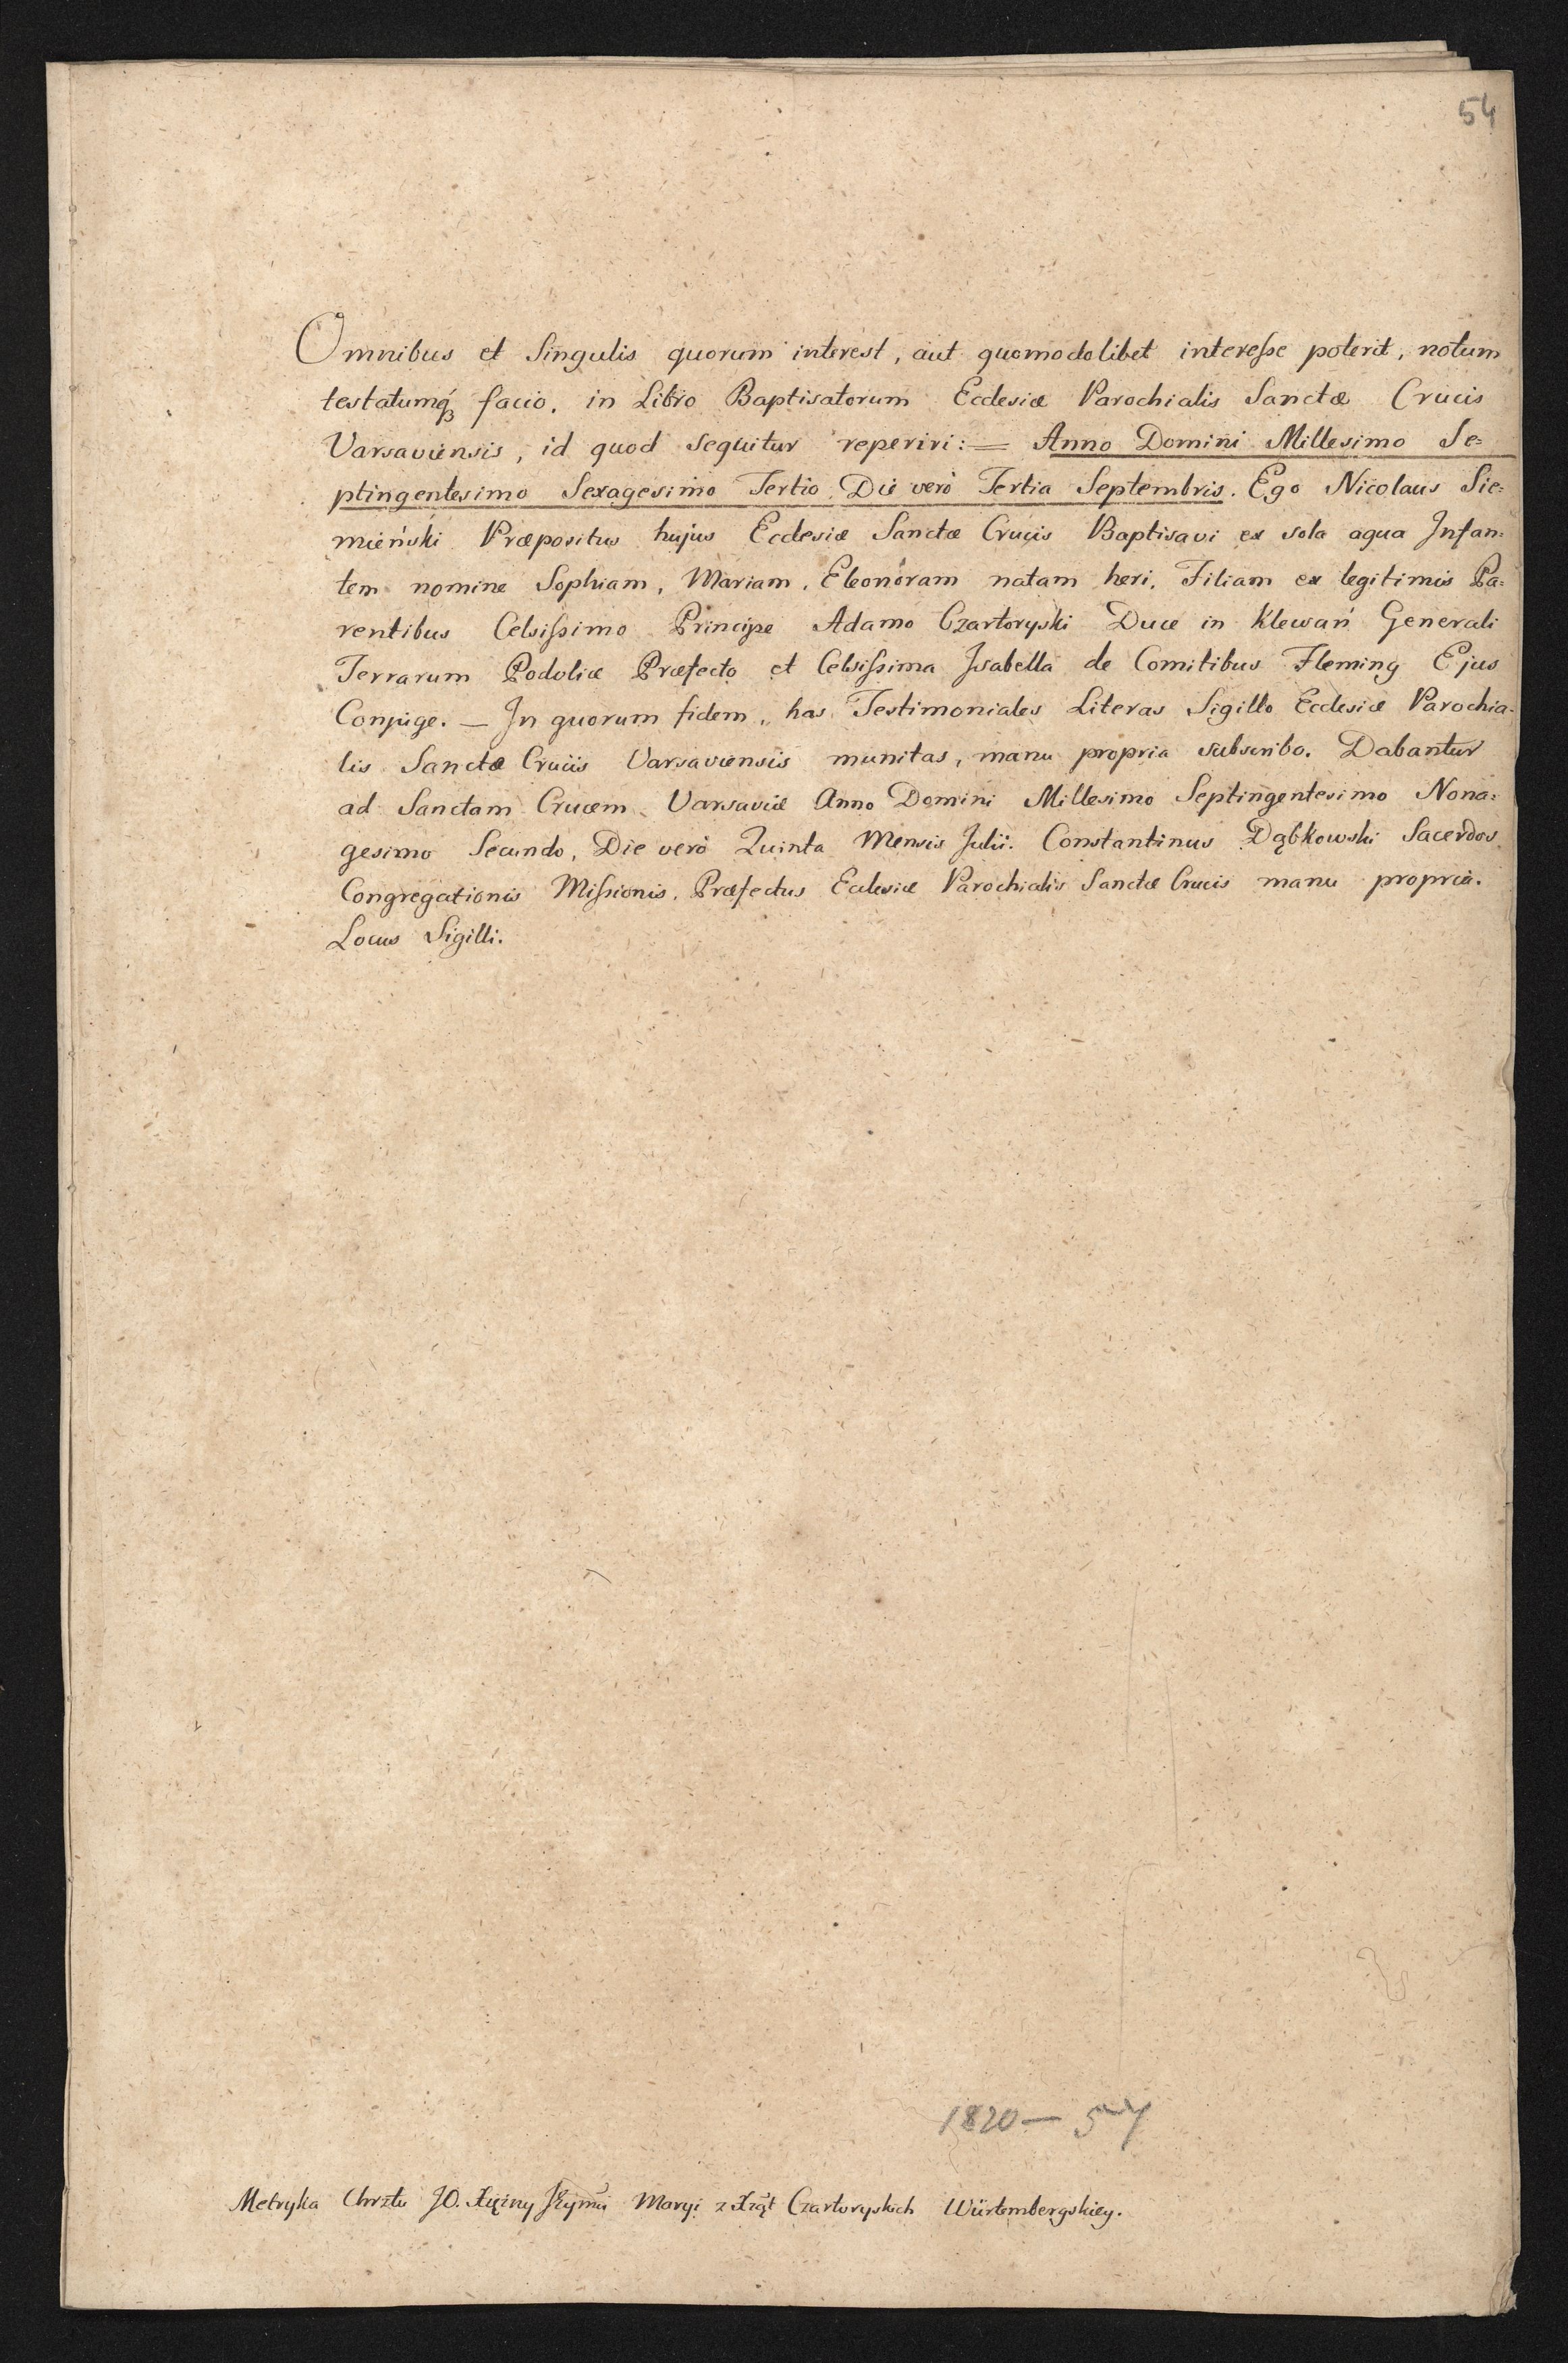 54
Omnibus et Singulis quorum interest, aut quomodolibet interesse poterit, notum
testatumq́ꝫ facio, in Libro Baptisatorum Ecclesiæ Parochialis Sanctæ Crucis
Varsaviensis, id quod sequitur reperiri: = Anno Domini Millesimo Se=
ptingentesimo Sexagesimo Tertio. Die verò Tertia Septembris. Ego Nicolaus Sie=
mieński Præpositus hujus Ecclesiæ Sanctæ Crucis Baptisavi ex sola aqua Infan=
tem nomine Sophiam, Mariam, Eleonoram natam heri, Filiam ex legitimis Pa=
rentibus Celsissimo Principe Adamo Czartoryski Duce in Klewań Generali
Terrarum Podoliæ Præfecto et Celsissima Isabella de Comitibus Fleming Ejus
Conjuge. — In quorum fidem, has Testimoniales Literas Sigillo Ecclesiæ Parochia=
lis Sanctæ Crucis Varsaviensis munitas, manu propria subscribo. Dabantur
ad Sanctam Crucem Varsaviæ Anno Domini Millesimo Septingentesimo Nona=
gesimo Secundo, Die verò Quinta Mensis Julii. Constantinus Dąbkowski Sacerdos
Congregationis Missionis, Præfectus Ecclesiæ Parochialis Sanctæ Crucis manu propria.
Locus Sigilli.
1820 — 54
Metryka Chrztu JO. Xiężny Maryi z Xżąt Czartoryskich Würtembergskiey.